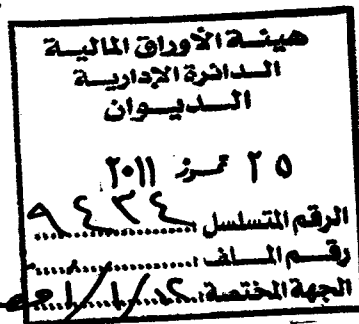 هيئة الأوراق المالية
الدائرة الإدارية
الديوان
٢٥ تموز ٢٠١١
الرقم المتسلسل ٩٤٣٤
رقم الملف
الجهة المختصة